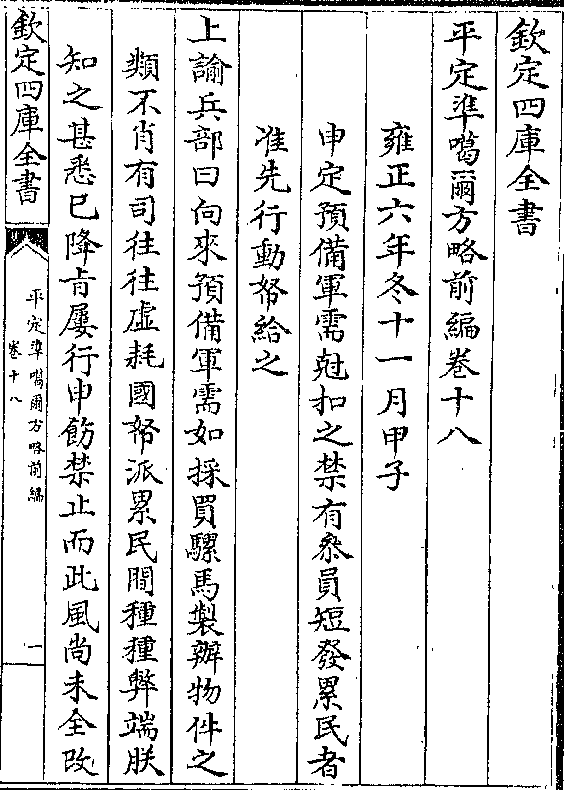 欽定四庫全書
平定準噶爾方略前編卷十八
雍正六年冬十一月甲子
申定預備軍需尅扣之禁有叅員短發累民者
准先行動帑給之
上諭兵部曰向來預備軍需如採買騾馬製辦物件之
類不肖有司往往虛耗國帑派累民間種種弊端朕
知之甚悉已降㫖屢行申飭禁止而此風尚未全改
欽定四庫全書
平定準噶爾方略前編
卷十八
一